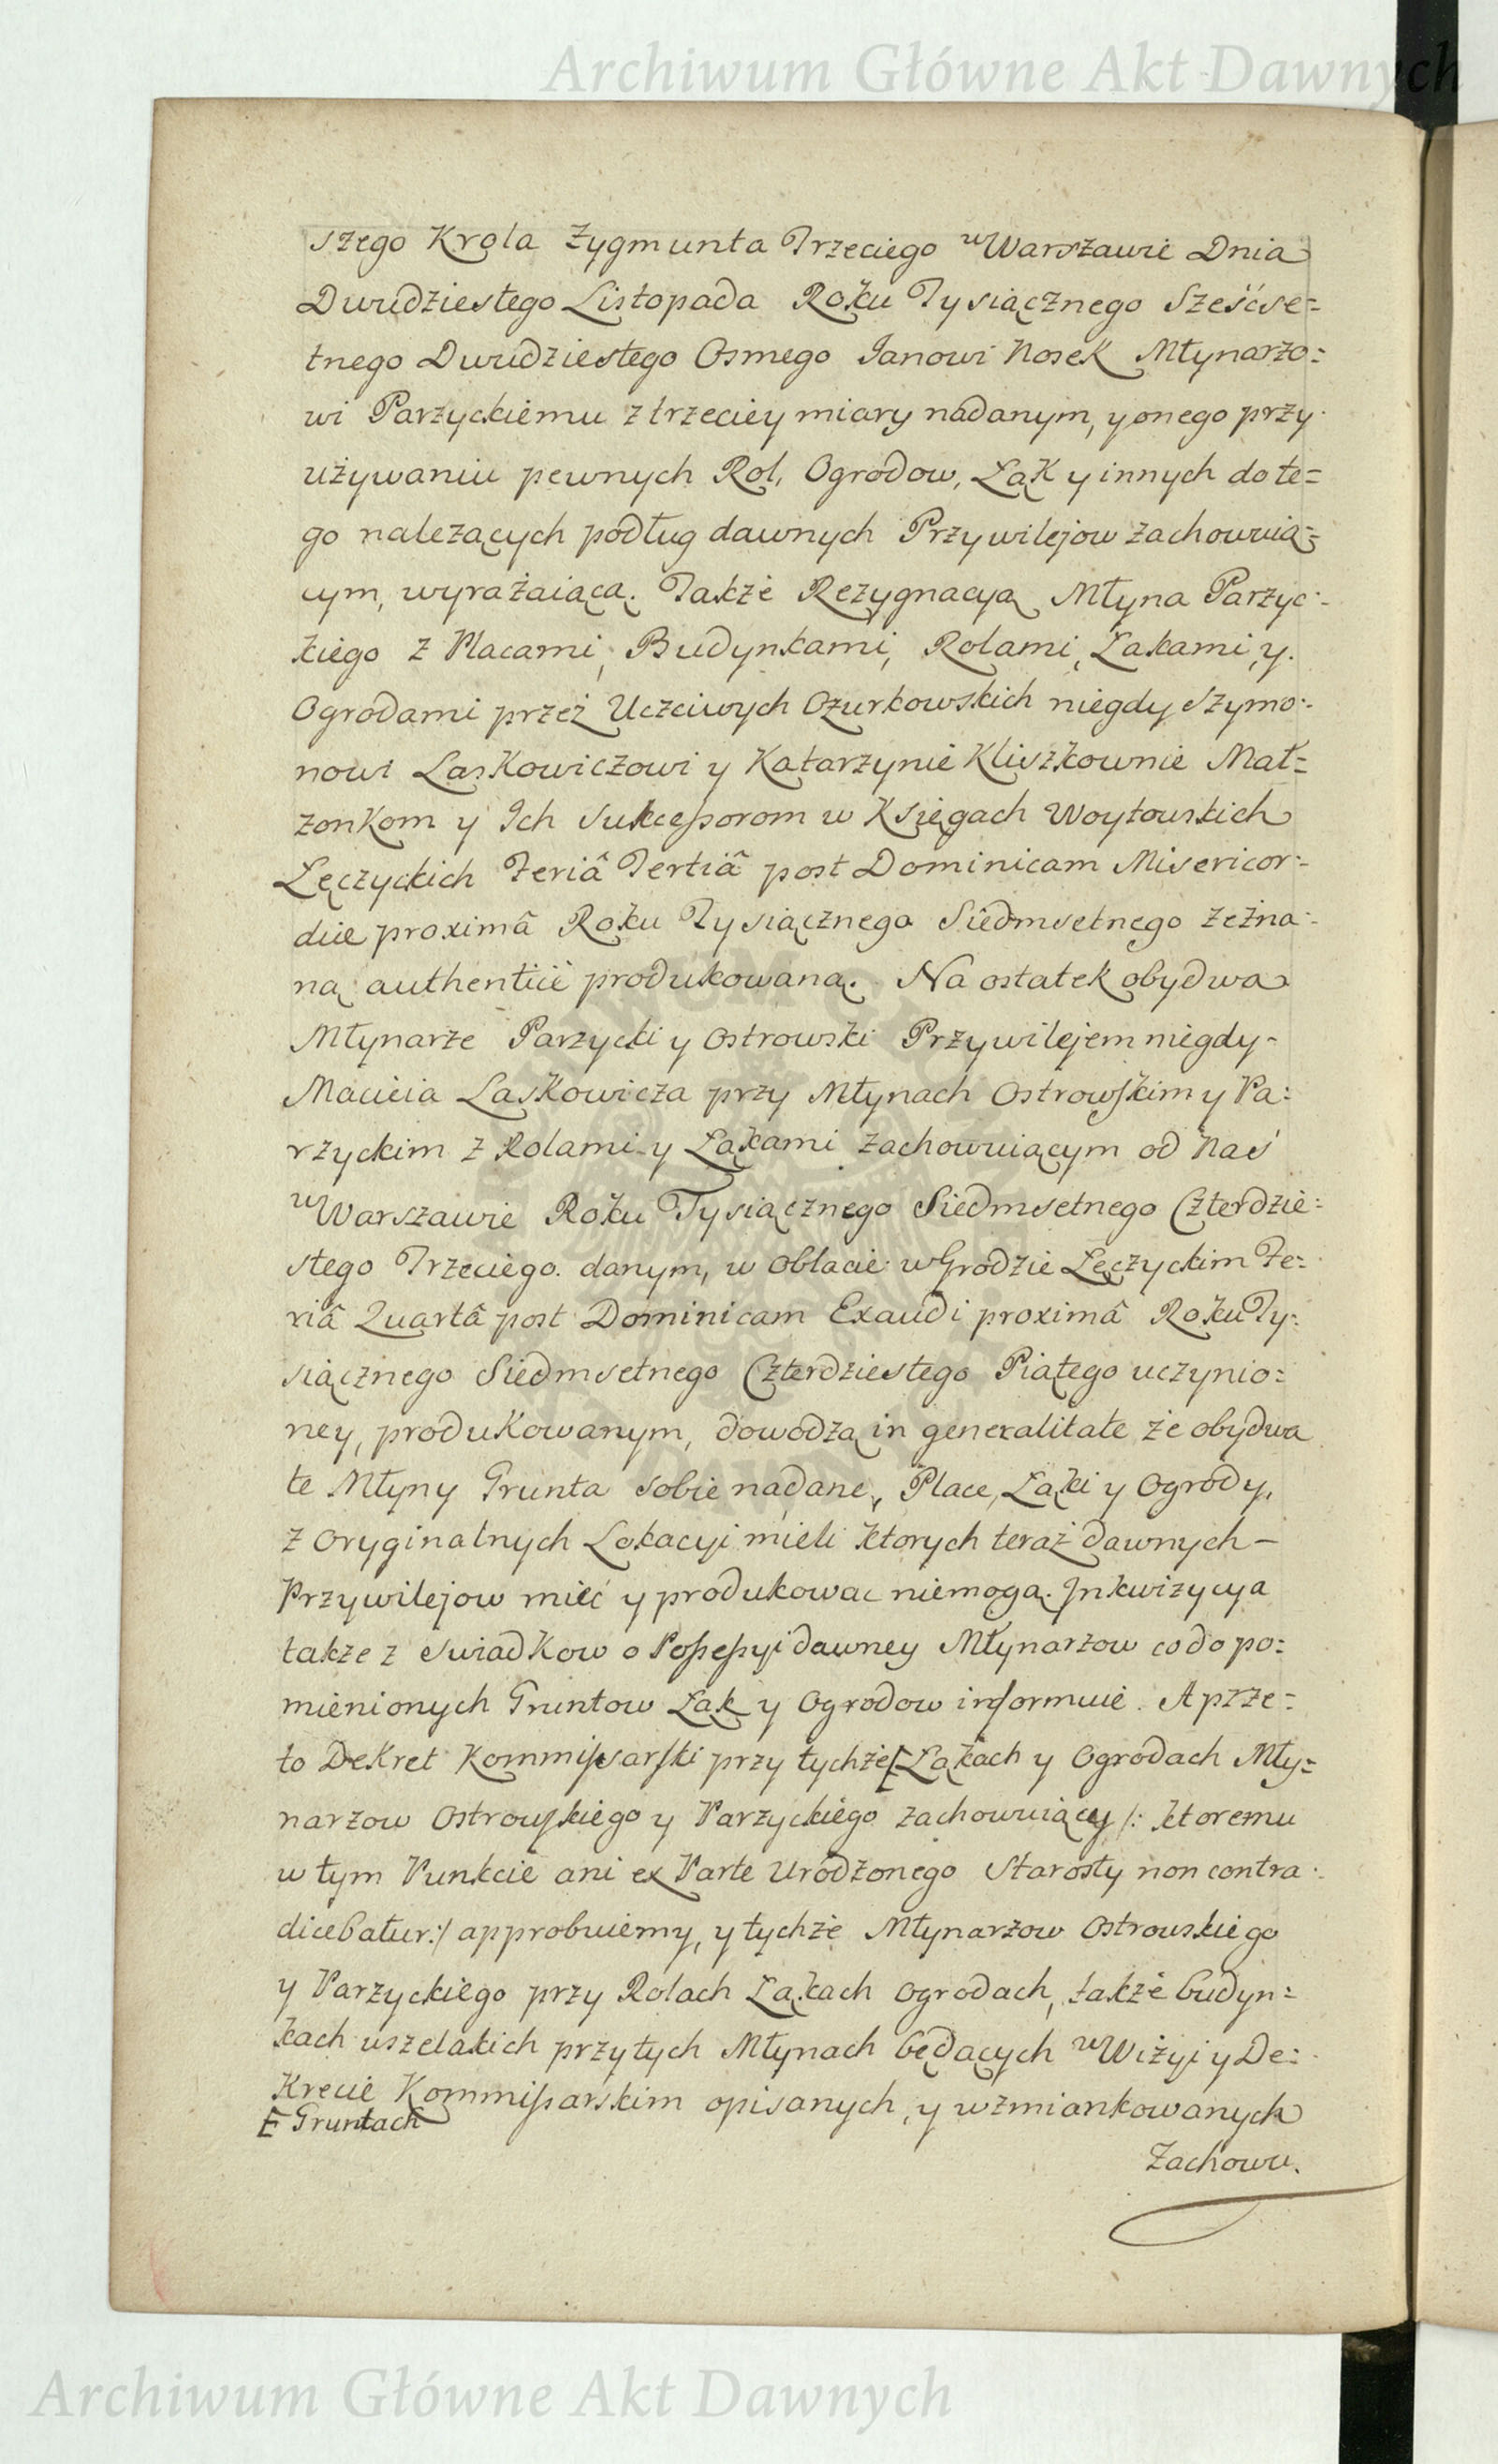 Archiwum Główne Akt Dawnych
szego Krola Zygmunta Trzeciego w Warszawie Dnia
Dwudziestego Listopada Roku Tysiącznego Sześćse=
tnego Dwudziestego Osmego Janowi Nosek Młynarzo=
wi Parzyckiemu z trzeciey miary nadanym, y onego przy
używaniu pewnych Rol, Ogrodow, Łąk y innych do te=
go nalezących podług dawnych Przywilejow zachowuią=
cym, wyrażaiącą. Także Rezygnacyą Młyna Parzyc=
kiego z Placami, Budynkami, Rolami, Łakami, y
Ogrodami przez Uczciwych Ozurkowskich niegdy Szymo=
nowi Laskowiczowi y Katarzynie Kliszkownie Mał=
zonkom y Ich Sukceßorom w Księgach Woytowskich
Łęczyckich Feriâ Tertiâ post Dominicam Misericor=
diæ proximâ Roku Tysiącznego Siedmsetnego zezna=
ną authenticè produkowaną. Na ostatek obydwa
Młynarze Parzycki y Ostrowski Przywilejem niegdy
Macieia Laskowicza przy Młynach Ostrowskim y Pa=
rzyckim z Rolami y Łąkami zachowuiącym od Nas
w Warszawie Roku Tysiącznego Siedmsetnego Czterdzie=
stego Trzeciego danym, w Oblacie w Grodzie Łęczyckim Fe=
riâ Quartâ post Dominicam Exaudi proximâ Roku Ty=
siącznego Siedmsetnego Czterdziestego Piątego uczynio=
ney, produkowanym, dowodzą in generalitate że obydwa
te Młyny Grunta sobie nadane, Place, Łąki y Ogrody,
z Oryginalnych Lokacyi mieli ktorych teraz dawnych –
Przywilejow mieć y produkowac niemogą. Inkwizycya
takze z Swiadkow o Poßeßyi dawney Młynarzow co do po=
mienionych Gruntow Łąk y Ogrodow informuie. A prze=
to Dekret Kommißarski przy tychże [ Łąkach y Ogrodach Mły=
narzow Ostrowskiego y Parzyckiego zachowuiący /: ktoremu
w tym Punkcie ani ex Parte Urodzonego Starosty non contra
dicebatur :/ approbuiemy, y tychże Młynarzow Ostrowskiego
y Parzyckiego przy Rolach Łąkach Ogrodach, także budyn=
kach wszelakich przy tych Młynach będących w Wizyi y De=
krecie Kommißarskim opisanych, y wzmiankowanych
[ Gruntach
Zachowu.
Archiwum Główne Akt Dawnych